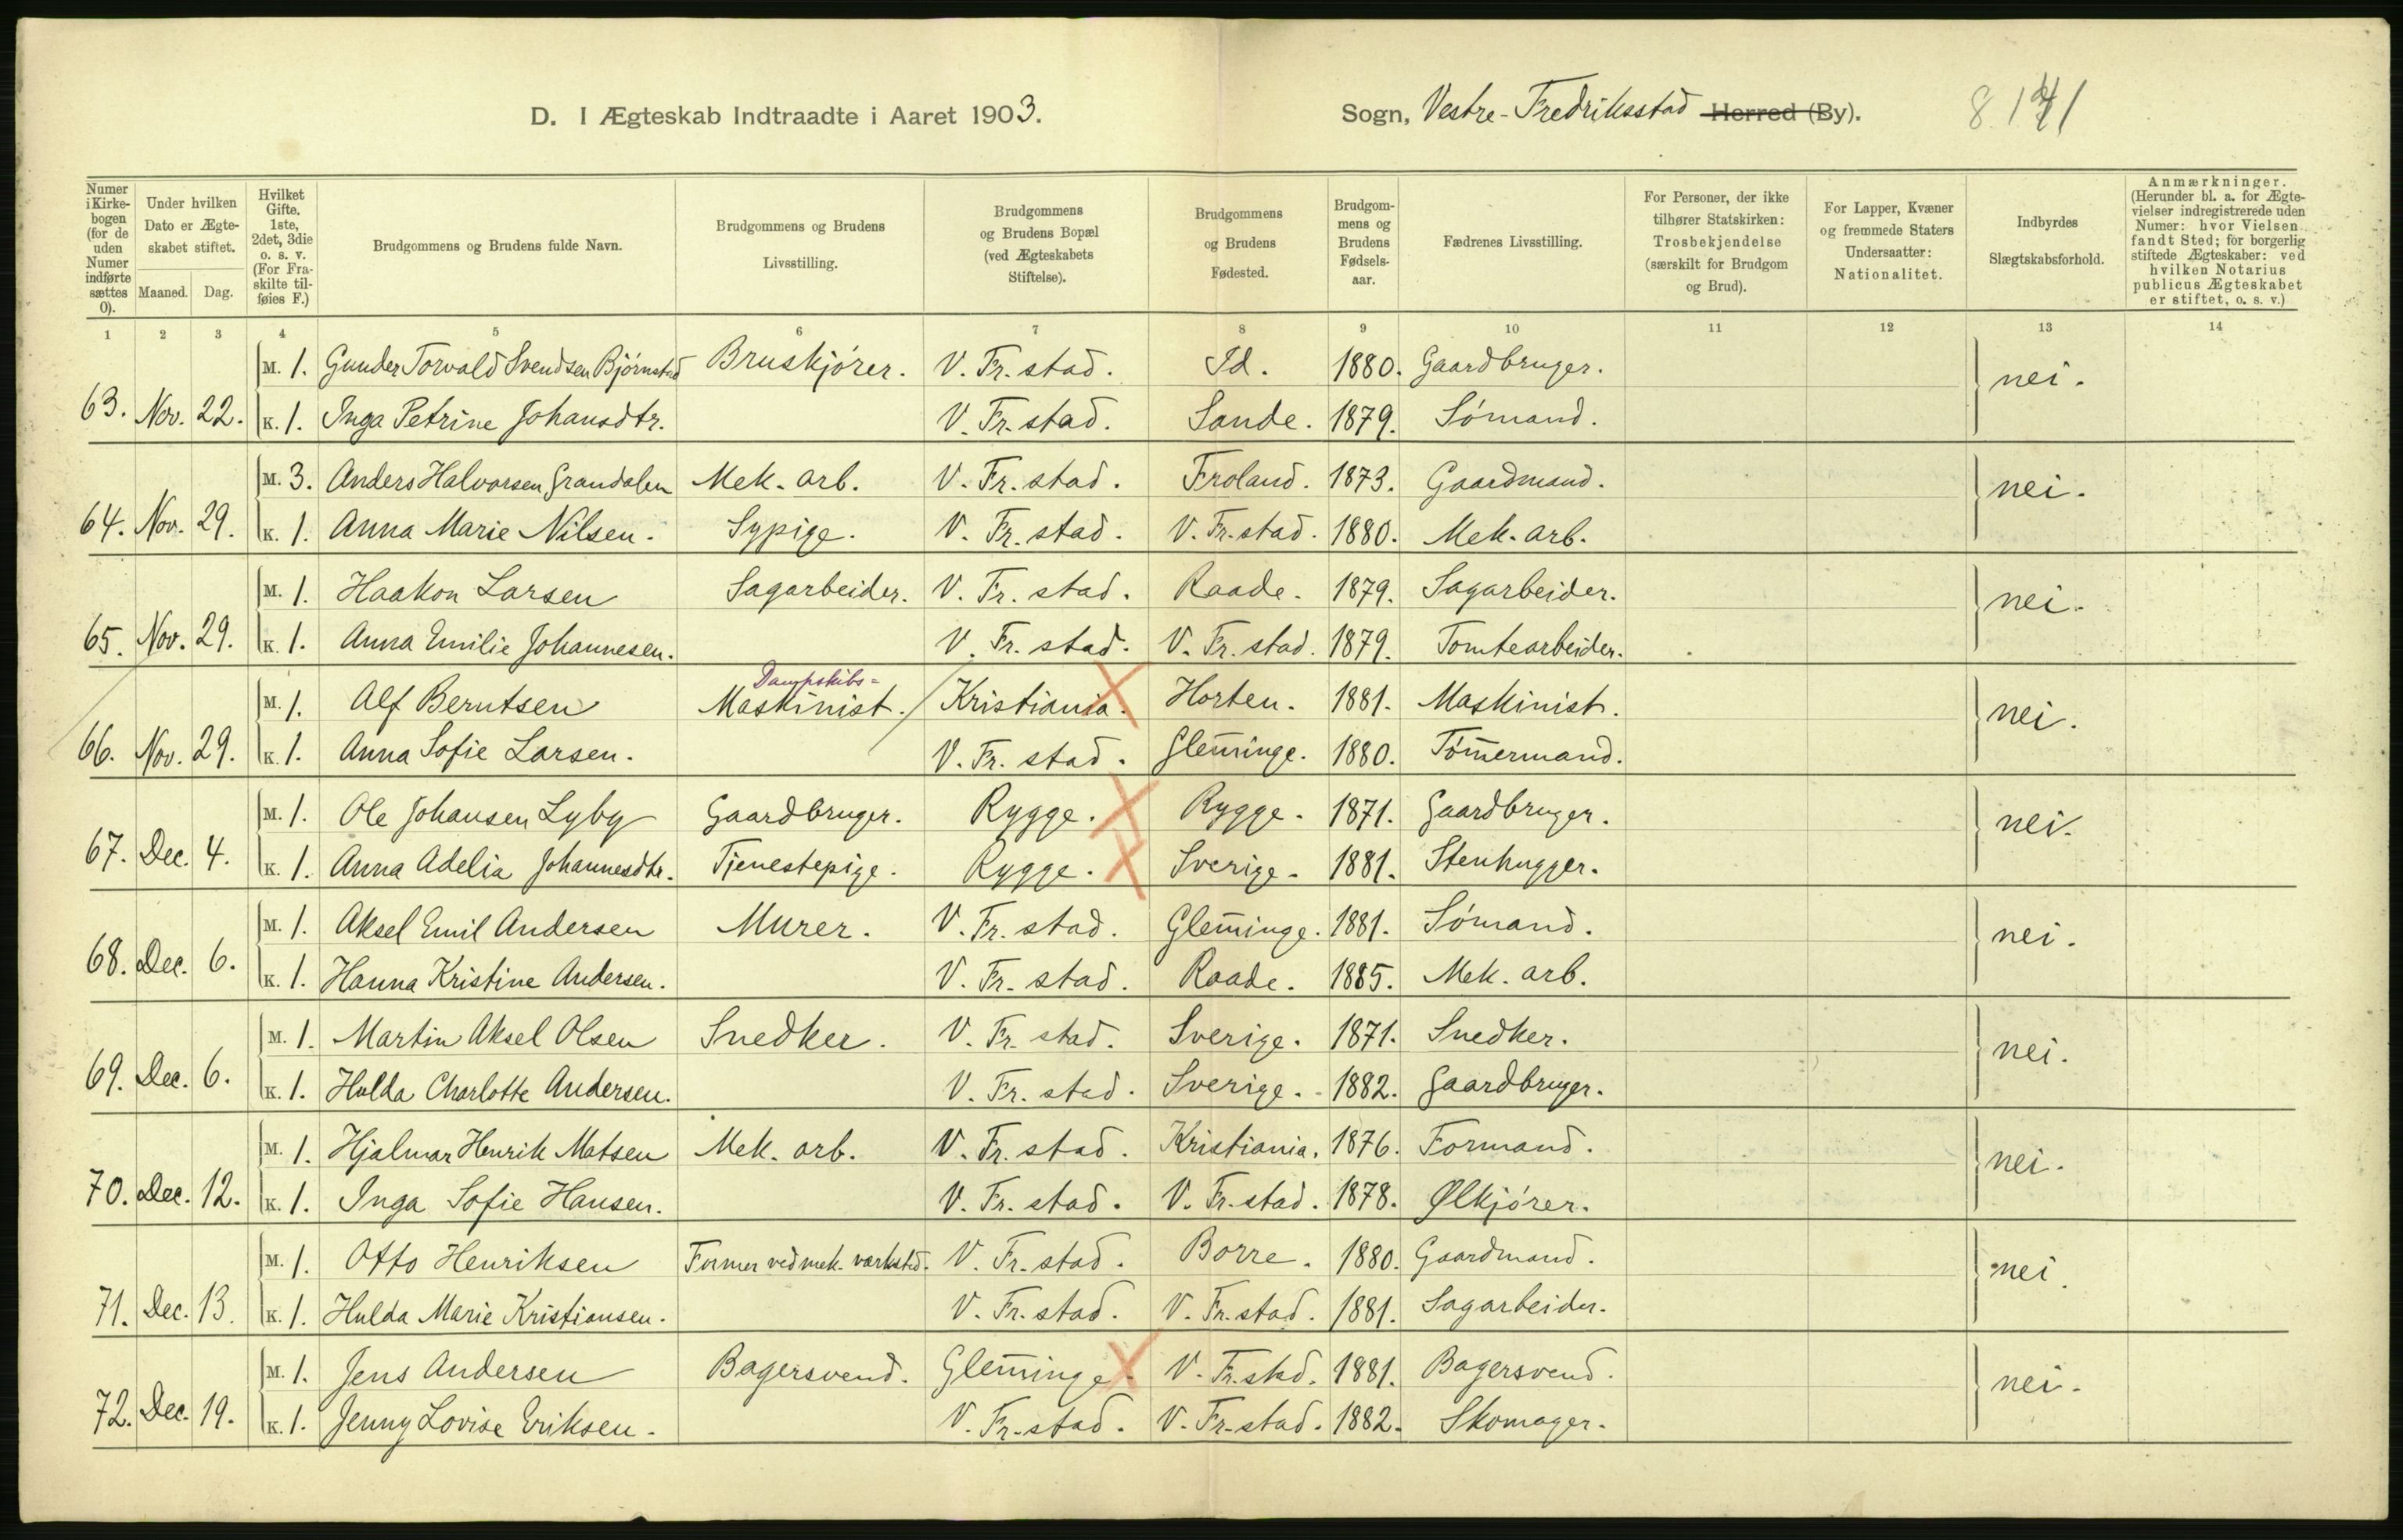 D. I Ægteskab Indtraadte i Aaret 1903.
Sogn, Vestre-Fredriksstad Herred (By).
Numer i Kirkebogen (for de uden Numer indførte sættes 0).
Under hvilken Dato er Ægteskabet stiftet.
Maaned. Dag.
Hvilket Gifte. 1ste, 2det, 3die o. s. v. (For Fraskilte tilføies F.)
Brudgommens og Brudens fulde Navn.
Brudgommens og Brudens Livsstilling.
Brudgommens og Brudens Bopæl (ved Ægteskabets Stiftelse).
Brudgommens og Brudens Fødested.
Brudgommens og Brudens Fødselsaar.
Fædrenes Livsstilling.
For Personer, der ikke tilhører Statskirken: Trosbekjendelse (særskilt for Brudgom og Brud).
For Lapper, Kvæner og fremmede Staters Undersaatter: Nationalitet.
Indbyrdes Slægtskabsforhold.
Anmærkninger. (Herunder bl. a. for Ægtevielser indregistrerede uden Numer: hvor Vielsen fandt Sted; for borgerlig stiftede Ægteskaber: ved hvilken Notarius publicus Ægteskabet er stiftet, o. s. v.)
1 2 3 4 5 6 7 8 9 10 11 12 13 14
M. 1. Gunder Torvald Svendsen Bjørnstad Bruskjører. V. Fr. stad. Id. 1880. Gaardbruger. nei.
63. Nov. 22. K. 1. Inga Petrine Johansdtr. V. Fr. stad. Sande. 1879. Sømand.
M. 3. Anders Halvorsen Grandalen Mek. arb. V. Fr. stad. Froland. 1873. Gaardmand. nei.
64. Nov. 29. K. 1. Anna Marie Nilsen. Sypige. V. Fr. stad. V. Fr. stad. 1880. Mek. arb.
M. 1. Haakon Larsen Sagarbeider. V. Fr. stad. Raade. 1879. Sagarbeider. nei.
65. Nov. 29. K. 1. Anna Emilie Johannesen. V. Fr. stad. V. Fr. stad. 1879. Tomtearbeider.
Dampskibs=
M. 1. Alf Berntsen Maskinist. Kristiania. Horten. 1881. Maskinist. nei.
66. Nov. 29. K. 1. Anna Sofie Larsen. V. Fr. stad. Glem̄inge. 1880. Tøm̄ermand.
M. 1. Ole Johansen Lyby Gaardbruger. Rygge. Rygge. 1871. Gaardbruger. nei.
67. Dec. 4. K. 1. Anna Adelia Johannesdtr. Tjenestepige. Rygge. Sverige. 1881. Stenhugger.
M. 1. Aksel Emil Andersen Murer. V. Fr. stad. Glem̄inge. 1881. Sømand. nei.
68. Dec. 6. K. 1. Hanna Kristine Andersen. V. Fr. stad. Raade. 1885. Mek. arb.
M. 1. Martin Aksel Olsen Snedker. V. Fr. stad. Sverige. 1871. Snedker. nei.
69. Dec. 6. K. 1. Hulda Charlotte Andersen. V. Fr. stad. Sverige. 1882. Gaardbruger.
M. 1. Hjalmar Henrik Matsen Mek. arb. V. Fr. stad. Kristiania. 1876. Formand. nei.
70. Dec. 12. K. 1. Inga Sofie Hansen. V. Fr. stad. V. Fr. stad. 1878. Ølkjører.
M. 1. Otto Henriksen Former ved mek. værksted. V. Fr. stad. Borre. 1880. Gaardmand. nei.
71. Dec. 13. K. 1. Hulda Marie Kristiansen. V. Fr. stad. V. Fr. stad. 1881. Sagarbeider.
M. 1. Jens Andersen Bagersvend. Glem̄inge. V. Fr. stad. 1881. Bagersvend. nei.
72. Dec. 19. K. 1. Jenny Lovise Eriksen. V. Fr. stad. V. Fr. stad. 1882. Skomager.